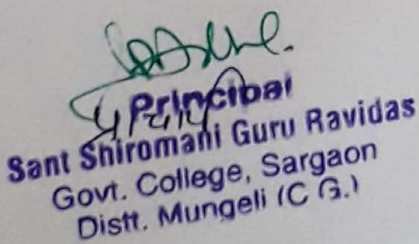 Principal
Sant Shiromani Guru Ravidas
Govt. College, Sargaon
Distt. Mungeli (C G.)